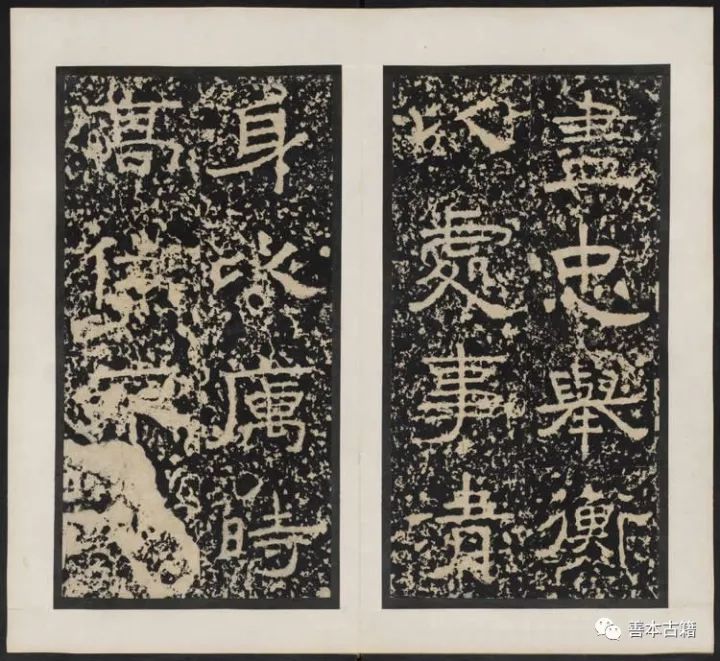 盡忠舉衡
以處事清
身冰厲時
善本古籍